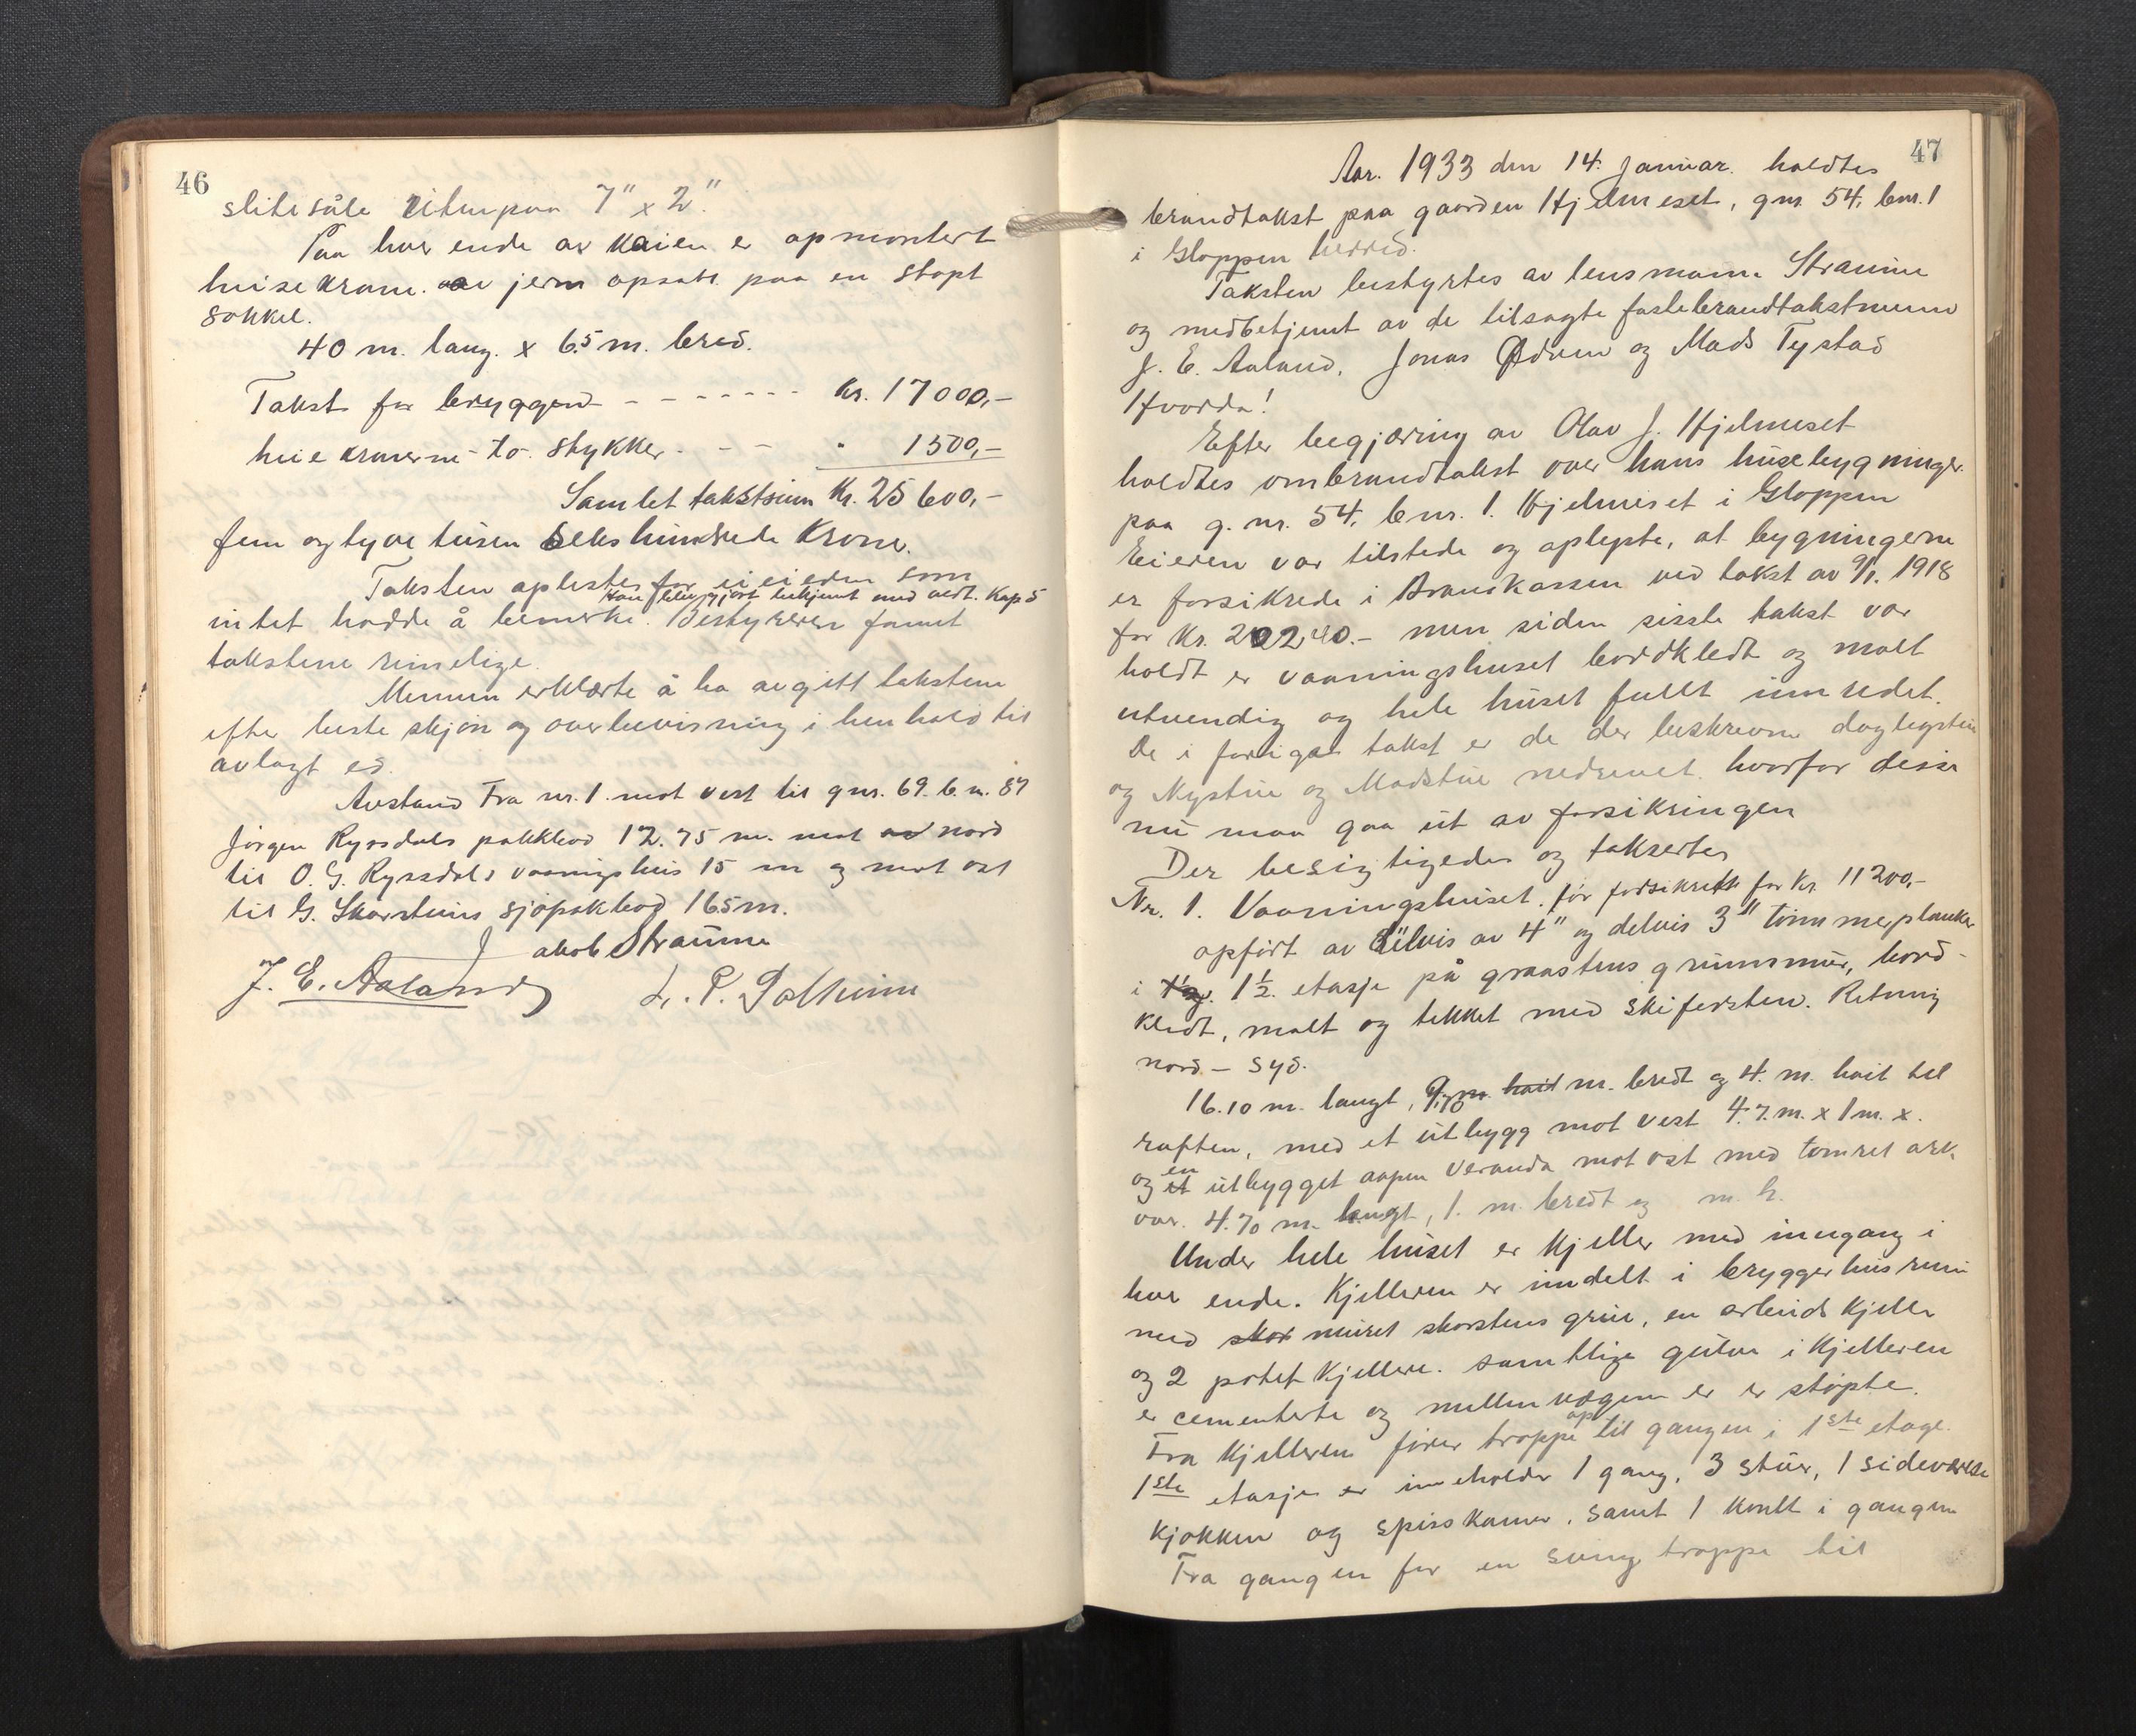 46
slitesåle utenpaa 7" x 2".
Paa hver ende av kaien er opmontert
heisekrane av jern opsatt paa en støpt
sokkel.
40 m. lang. x 6.5 m. bred.
Takst for bryggen - - - - - - - kr. 17000,-
heisekranerne to stykker - - - " 1500,-
Samlet takstsum Kr. 25600,-
fem og tyve tusen sekshundrede Kroner.
Taksten oplestes for eieren som
blev gjort bekjent med vedt. Kap 5
intet hadde å bemerke. Bestyreren fannt
takstene rimelige.
Mennen erklærte å ha avgitt takstene
efter beste skjøn og overbevisning i henhold til
avlagt ed.
Avstand Fra nr. 1. mot vest til gnr. 69. b.n. 87
Jørgen Ryssdals pakkbod 12.75 m. mot av nord
til O. G. Ryssdals vaaningshus 15 m og mot øst
til G. Skarsteins sjøpakbod 16.5 m.
Jakob Straume
J. E. Aaland L. P. Solheim
47
Aar. 1933 den 14. januar. holdtes
brandtakst paa gaarden Hjelmeset, gnr. 54, bnr. 1
i Gloppen herred.
Taksten bestyrtes av lensmann Straume
og medbetjent av de tilsagte faste brandtakstmenn
J. E. Aaland, Jonas Ødven og Mads Tystad
Hvorda!
Efter begjæring av Olav J. Hjelmeset
holdtes ombrandtakst over hans husebygninger
paa g. nr. 54, bnr. 1. Hjelmeset i Gloppen
Eieren var tilstede og oplyste, at bygningerne
er forsikrede i Brandkassen ved takst av 9/1. 1918
for Kr. 20240.- men siden sisste takst var
holdt er vaaningshuset bordkledt og malt
utvendig og hele huset fullt innredet.
De i forrige takst er de der beskrevne daglegstue
og Nystue og Madstue nedrevet. hvorfor disse
nu maa gaa ut av forsikringen
Der besigtigedes og taksertes
Nr. 1. Vaaningshuset. før forsikrett for kr. 11200,-
opført av delvis av 4" og delvis 3" tømmerplanker
i 1 1/2. etasje på graastens grunnmur, bord-
kledt, malt og tekket med skifersten. Retning
nord - syd.
16.10 m. langt, 9,70 m. høit m. bredt og 4. m. høit til
raften, med et utbygg mot vest 4.7. m. x 1 m. x.
og et en utbygget aapen veranda mot øst med tømret ark.
over. 4.70 m. langt, 1. m. bredt og m. h.
Under hele huset er kjeller med inngang i
hver ende. Kjelleren er inndelt i bryggerhusrum
med skor muret skorstens grue, en arbeids kjeller
og 2 potetkjellere. samtlige gulve i kjelleren
er cementerte og mellemvægene er er støpte.
Fra kjelleren fører trappe op til gangen i 1ste etage.
1ste etasje er inneholder 1 gang, 3 stuer, 1 sideværelse
kjøkken og spisskamer, samt 1 kott i gangen
Fra gangen før en sving trappe til